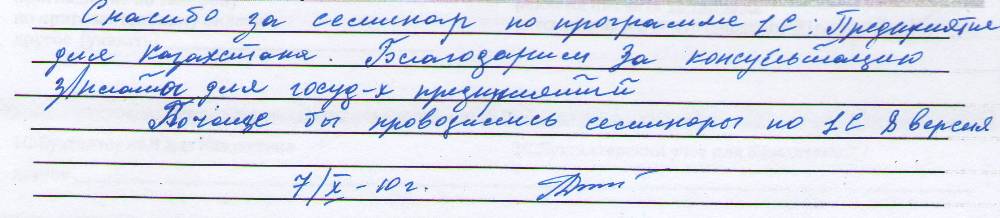 Спасибо за семинар по программе 1С: Предприятие
для Казахстана. Благодарим за консультацию
з/платы для госуд-х предприятий
Почаще бы проводились семинары по 1С 8 версия
7/X - 10 г.